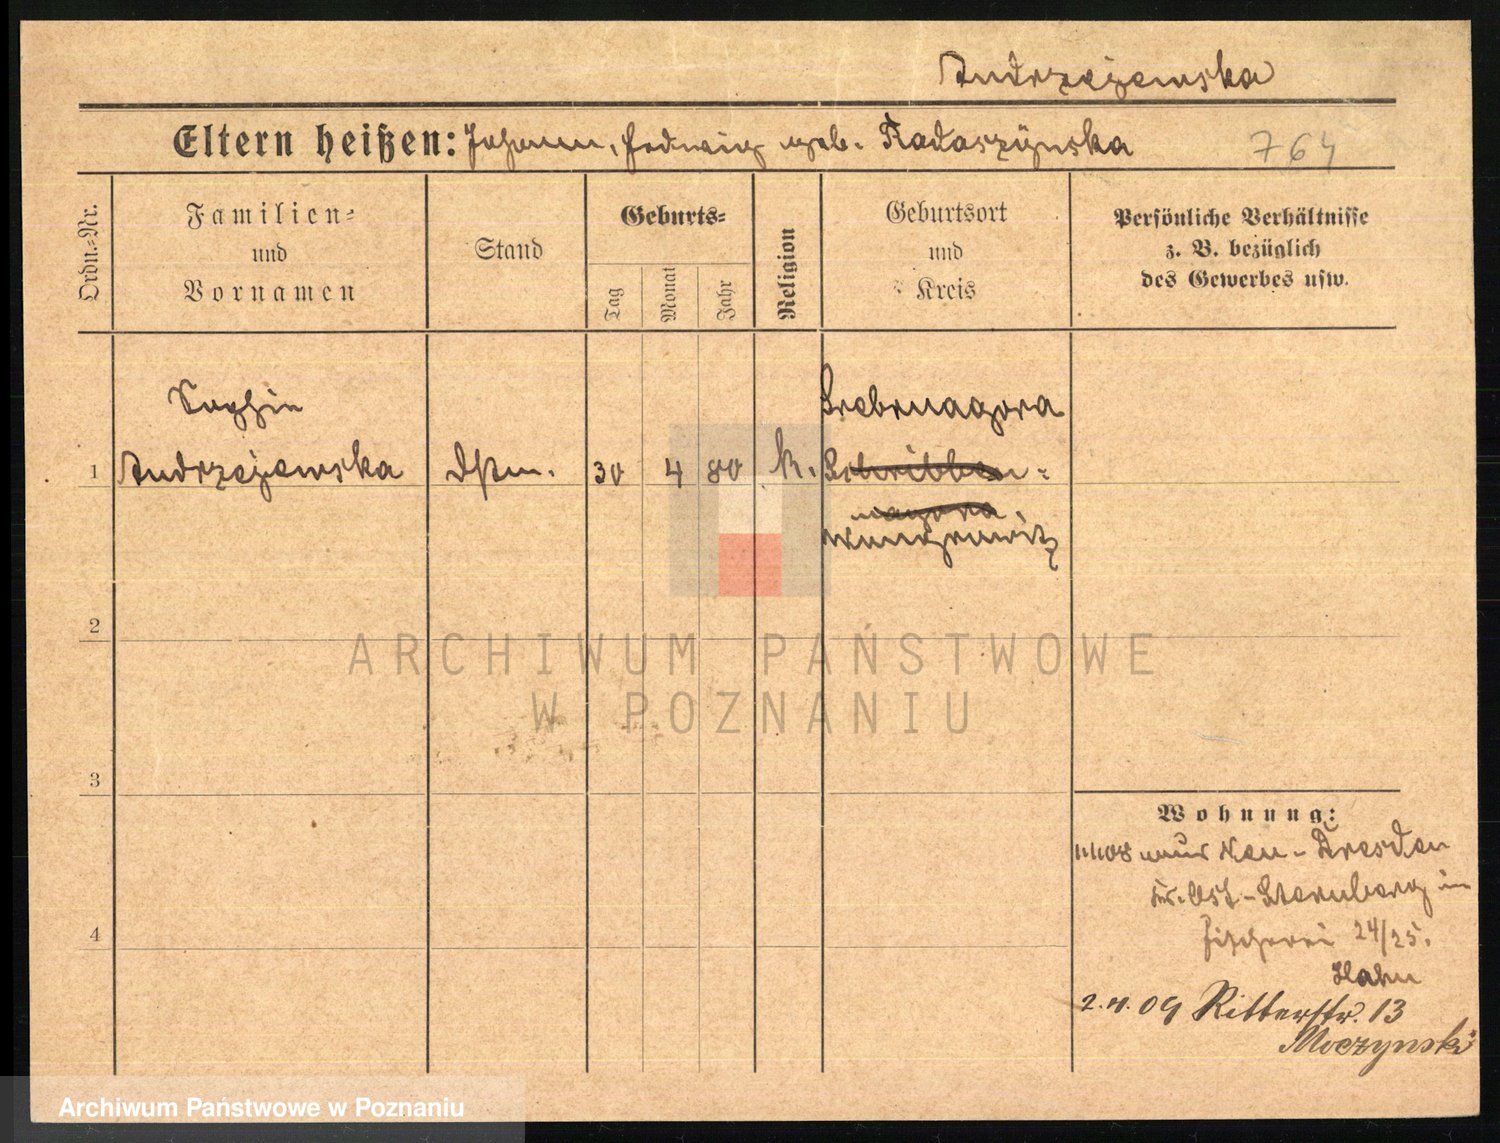 Andrzejewska
Eltern heißen: Johann, Hedwig geb. Radaszynska 764
Ordn.-Nr.
Familien-
und
Vornamen
Stand
Geburts-
Tag
Monat
Jahr
Religion
Geburtsort
und
Kreis
Persönliche Verhältnisse
z. B. bezüglich
des Gewerbes usw.
Sophie
Srebrnagora
1 Andrzejewska Dstm. 30 4 80 k.
nagora
Wongrowitz
2
3
4
Wohnung:
nach Neu-Dresden
Kr. Ost-Sternberg in
Fischerei 24/25.
Hahn
2.4.09 Ritterstr. 13
Moczynski
ARCHIWUM PAŃSTWOWE
W POZNANIU
Archiwum Państwowe w Poznaniu